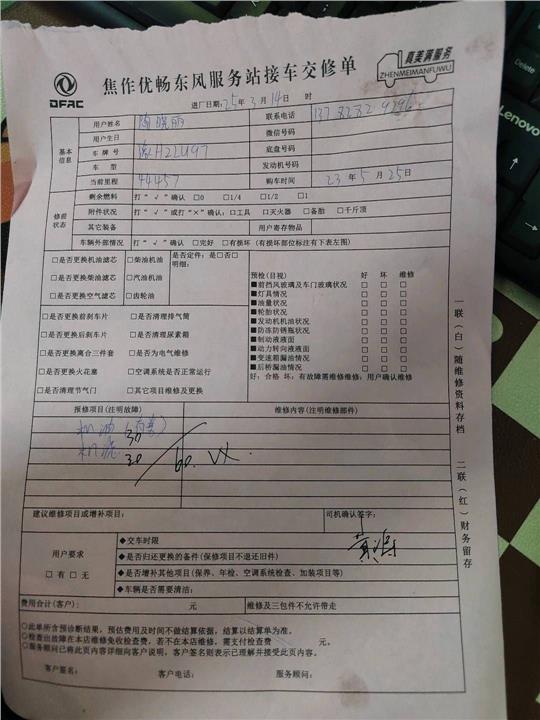 DFAC
焦作优畅东风服务站接车交修单
真美满服务
ZHENMEIMANFUWU
进厂日期: 25年 3月 14日 时
基本信息
用户姓名 陶晓丽 联系电话 137 8282 9296
用户生日 微信号码
车牌号 豫H22U97 底盘号码
车型 发动机号码
当前里程 44457 购车时间 23年 5月 25日
修前状态
剩余燃料 打“√”确认 □0 □1/4 □1/2 □1
附件状况 打“√”或打“×”确认: □工具 □灭火器 □备胎 □千斤顶
其它装备 用户寄存物品
车辆外部情况 打“√”确认 □完好 □有损坏 (有损坏部位标注有下表左图)
□是否更换机油滤芯 □柴油机油 是否定件: 是□否□
明细:
□是否更换柴油滤芯 □汽油机油
□是否更换空气滤芯 □齿轮油
□是否更换前刹车片 □是否清理排气筒
□是否更换后刹车片 □是否清理尿素箱
□是否更换离合三件套 □是否为电气维修
□是否更换火花塞 □空调系统是否正常运行
□是否清理节气门 □其它项目维修及更换
预检(目视) 好 坏 维修
■前挡风玻璃及车门玻璃状况 □ □ □
■灯具情况 □ □ □
■油量状况 □ □ □
■轮胎状况 □ □ □
■发动机机油状况 □ □ □
■防冻防锈瓶状况 □ □ □
■制动液液面 □ □ □
■动力转向液液面 □ □ □
■变速箱漏油情况 □ □ □
■后桥漏油情况 □ □ □
好: 合格 坏: 有故障需维修维修: 用户确认维修
报修项目(注明故障) 维修内容(注明维修部件)
机油
30
机滤
30
60.
建议维修项目或增补项目: 司机确认签字:
用户要求
□有□无
◆交车时限
◆是否归还更换的备件(保修项目不退还旧件)
◆是否增补其他项目(保养、年检、空调系统检查、加装项目等)
◆车辆是否需要清洁:
费用合计(客户): 元 维修及三包件不允许带走
○此单所含预诊断结果,预估费用及时间不做结算依据,结算以结算单为准。
○检查出故障在本店维修免收检查费,若不在本店维修,需支付检查费 元。
○服务顾问已将此页内容详细向客户说明,客户签名则表示已理解并接受此页内容。
客户签名: 客户电话: 服务顾问:
一联(白)随维修资料存档 二联(红)财务留存
Lenovo
Delete